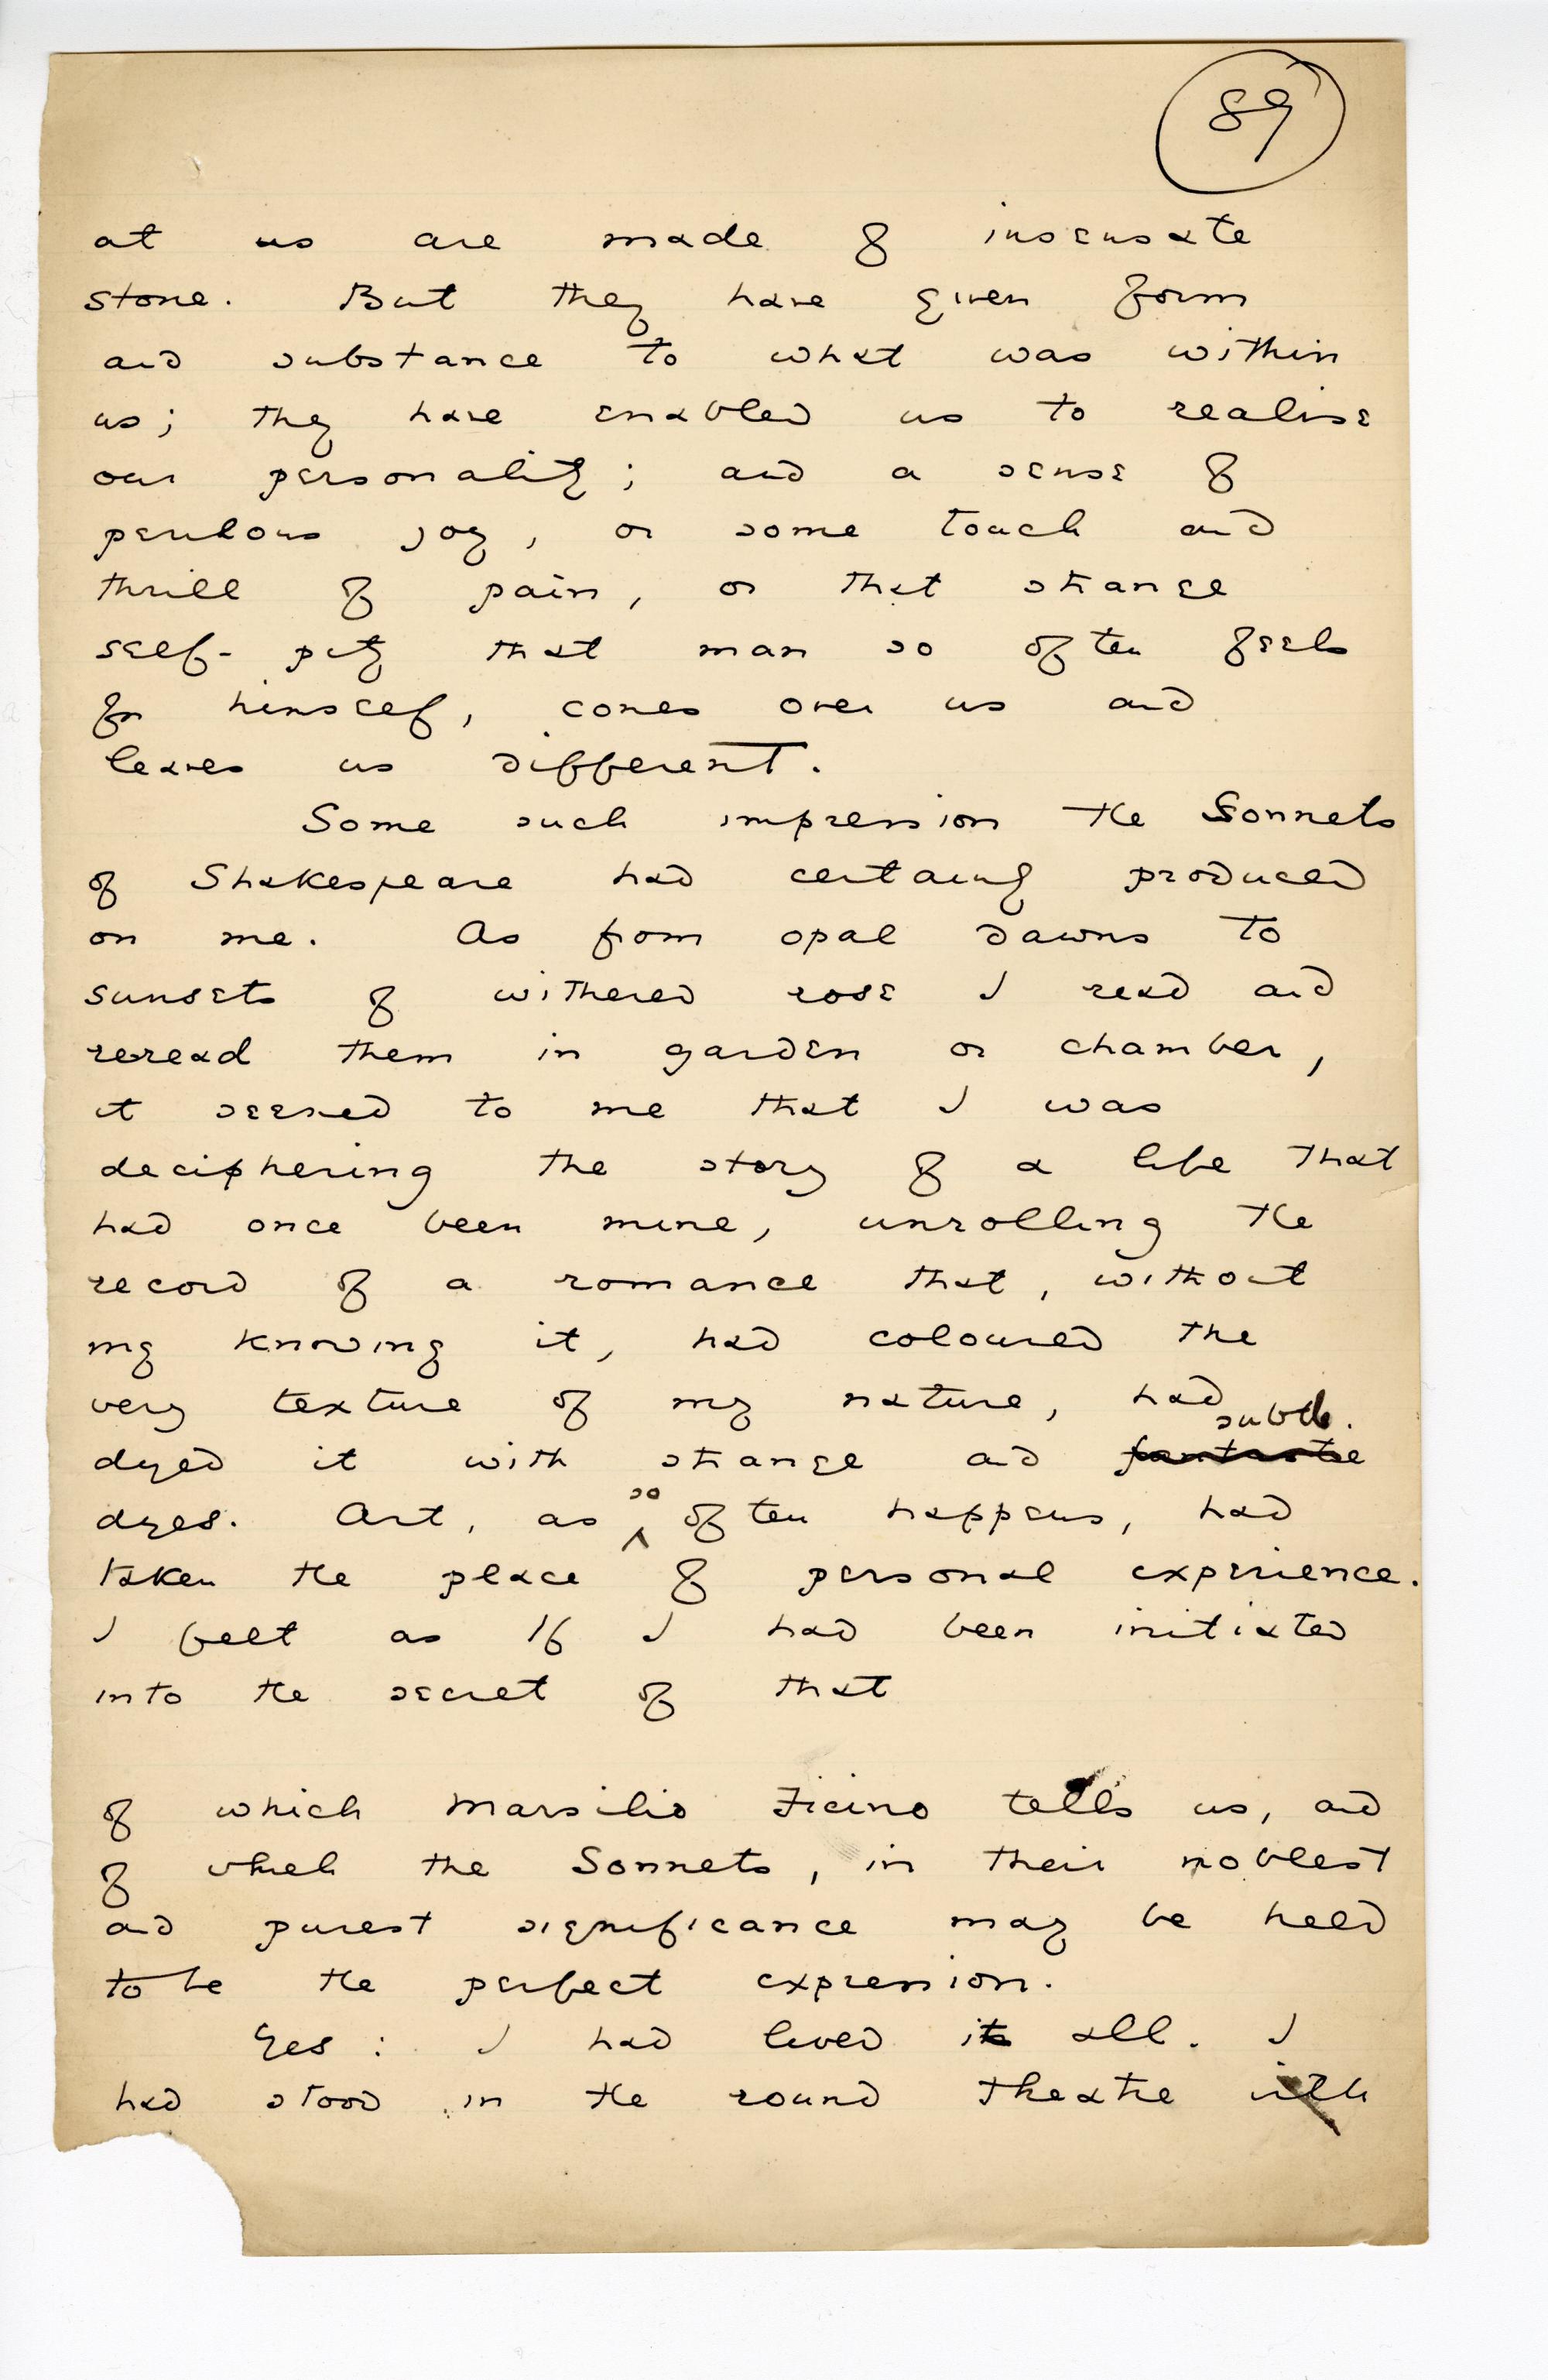 89
at us are made of insensate
stone. But they have given form
and substance to what was within
us; they have enabled us to realise
our personality; and a sense of
perilous joy, or some touch and
thrill of pain, or that strange
self-pity that man so often feels
for himself, comes over us and
leaves us different.
Some such impression the Sonnets
of Shakespeare had certainly produced
on me. As from opal dawns to
sunsets of withered rose I read and
reread them in garden or chamber,
it seemed to me that I was
deciphering the story of a life that
had once been mine, unrolling the
record of a romance that, without
my knowing it, had coloured the
very texture of my nature, had
subtle.
dyed it with strange and fantastic
so
dyes. Art, as often happens, had
taken the place of personal experience.
I felt as if I had been initiated
into the secret of that
of which Marsilio Ficino tells us, and
of which the Sonnets, in their noblest
and purest significance may be held
to be the perfect expression.
Yes: I had lived it all. I
had stood in the round theatre with